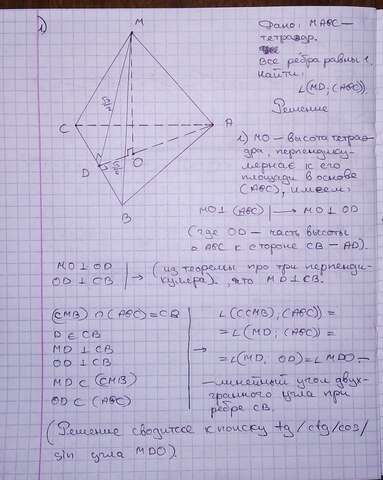 1)
Дано: MABC –
тетраэдр.
Все ребра равны 1.
Найти:
∠(MD; (ABC)).
Решение
M
C
A
D
O
B
√3/2
1) MO – высота тетраэ-
дра, перпендику-
лярная к его
площади в основе
(ABC), имеем:
MO ⊥ (ABC) | → MO ⊥ OD
(где OD – часть высоты
в ABC к стороне CB – AD).
MO ⊥ OD
OD ⊥ CB | → (из теоремы про три перпенди-
куляра), что MD ⊥ CB.
(CMB) ∩ (ABC) = CB
D ∈ CB
MD ⊥ CB
OD ⊥ CB
MD ⊂ (CMB)
OD ⊂ (ABC)
→
∠((CMB); (ABC)) =
= ∠(MD; (ABC)) =
= ∠(MD, OD) = ∠MDO –
– линейный угол двух-
гранного угла при
ребре CB.
(Решение сводится к поиску tg/ctg/cos/
sin угла MDO)